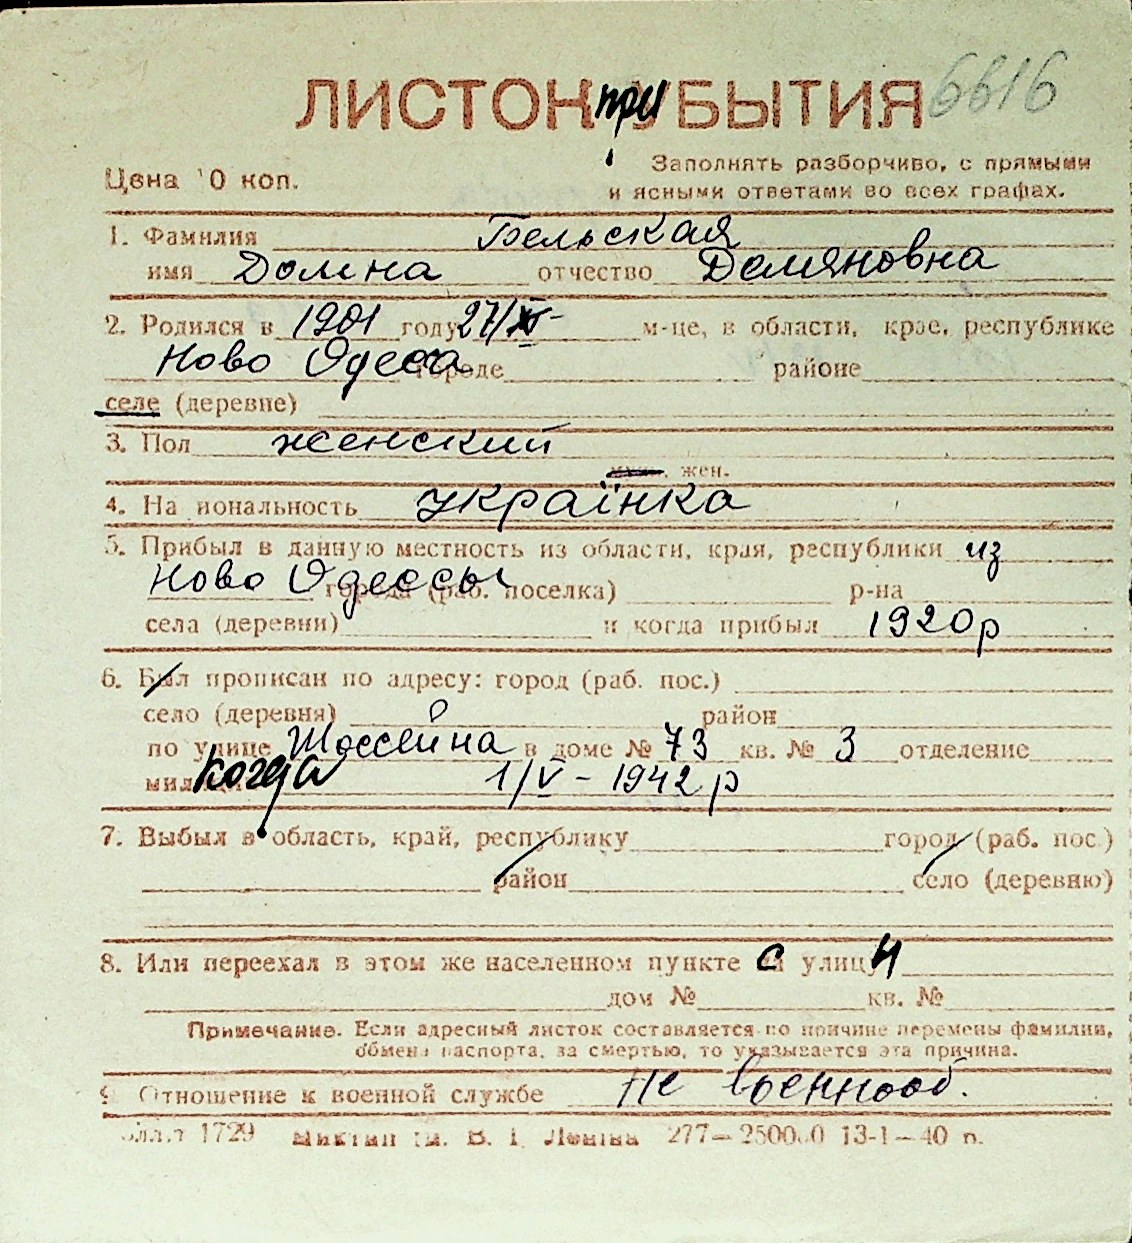 ЛИСТОК при БЫТИЯ 6616
Цена 10 коп.
Заполнять разборчиво, с прямыми
и ясными ответами во всех графах.
1. Фамилия Бельская
имя Домна отчество Демяновна
2. Родился в 1901 году 27/XI- м-це, в области, крае, республике
Ново Одеса городе районе
селе (деревне)
3. Пол женский
муж., жен.
4. Национальность українка
5. Прибыл в данную местность из области, края, республики из
Ново Одессы города (раб. поселка) р-на
села (деревни) и когда прибыл 1920р
6. Был прописан по адресу: город (раб. пос.)
село (деревня) район
по улице Шоссейна в доме № 73 кв. № 3 отделение
когда 1/V - 1942 р
7. Выбыл в область, край, республику город (раб. пос.)
район село (деревню)
8. Или переехал в этом же населенном пункте с улицы
дом № кв. №
Примечание. Если адресный листок составляется по причине перемены фамилии,
обмена паспорта, за смертью, то указывается эта причина.
9 Отношение к военной службе Не военнооб.
1729 В. І. Леніна 277—250000 13-1—40 п.